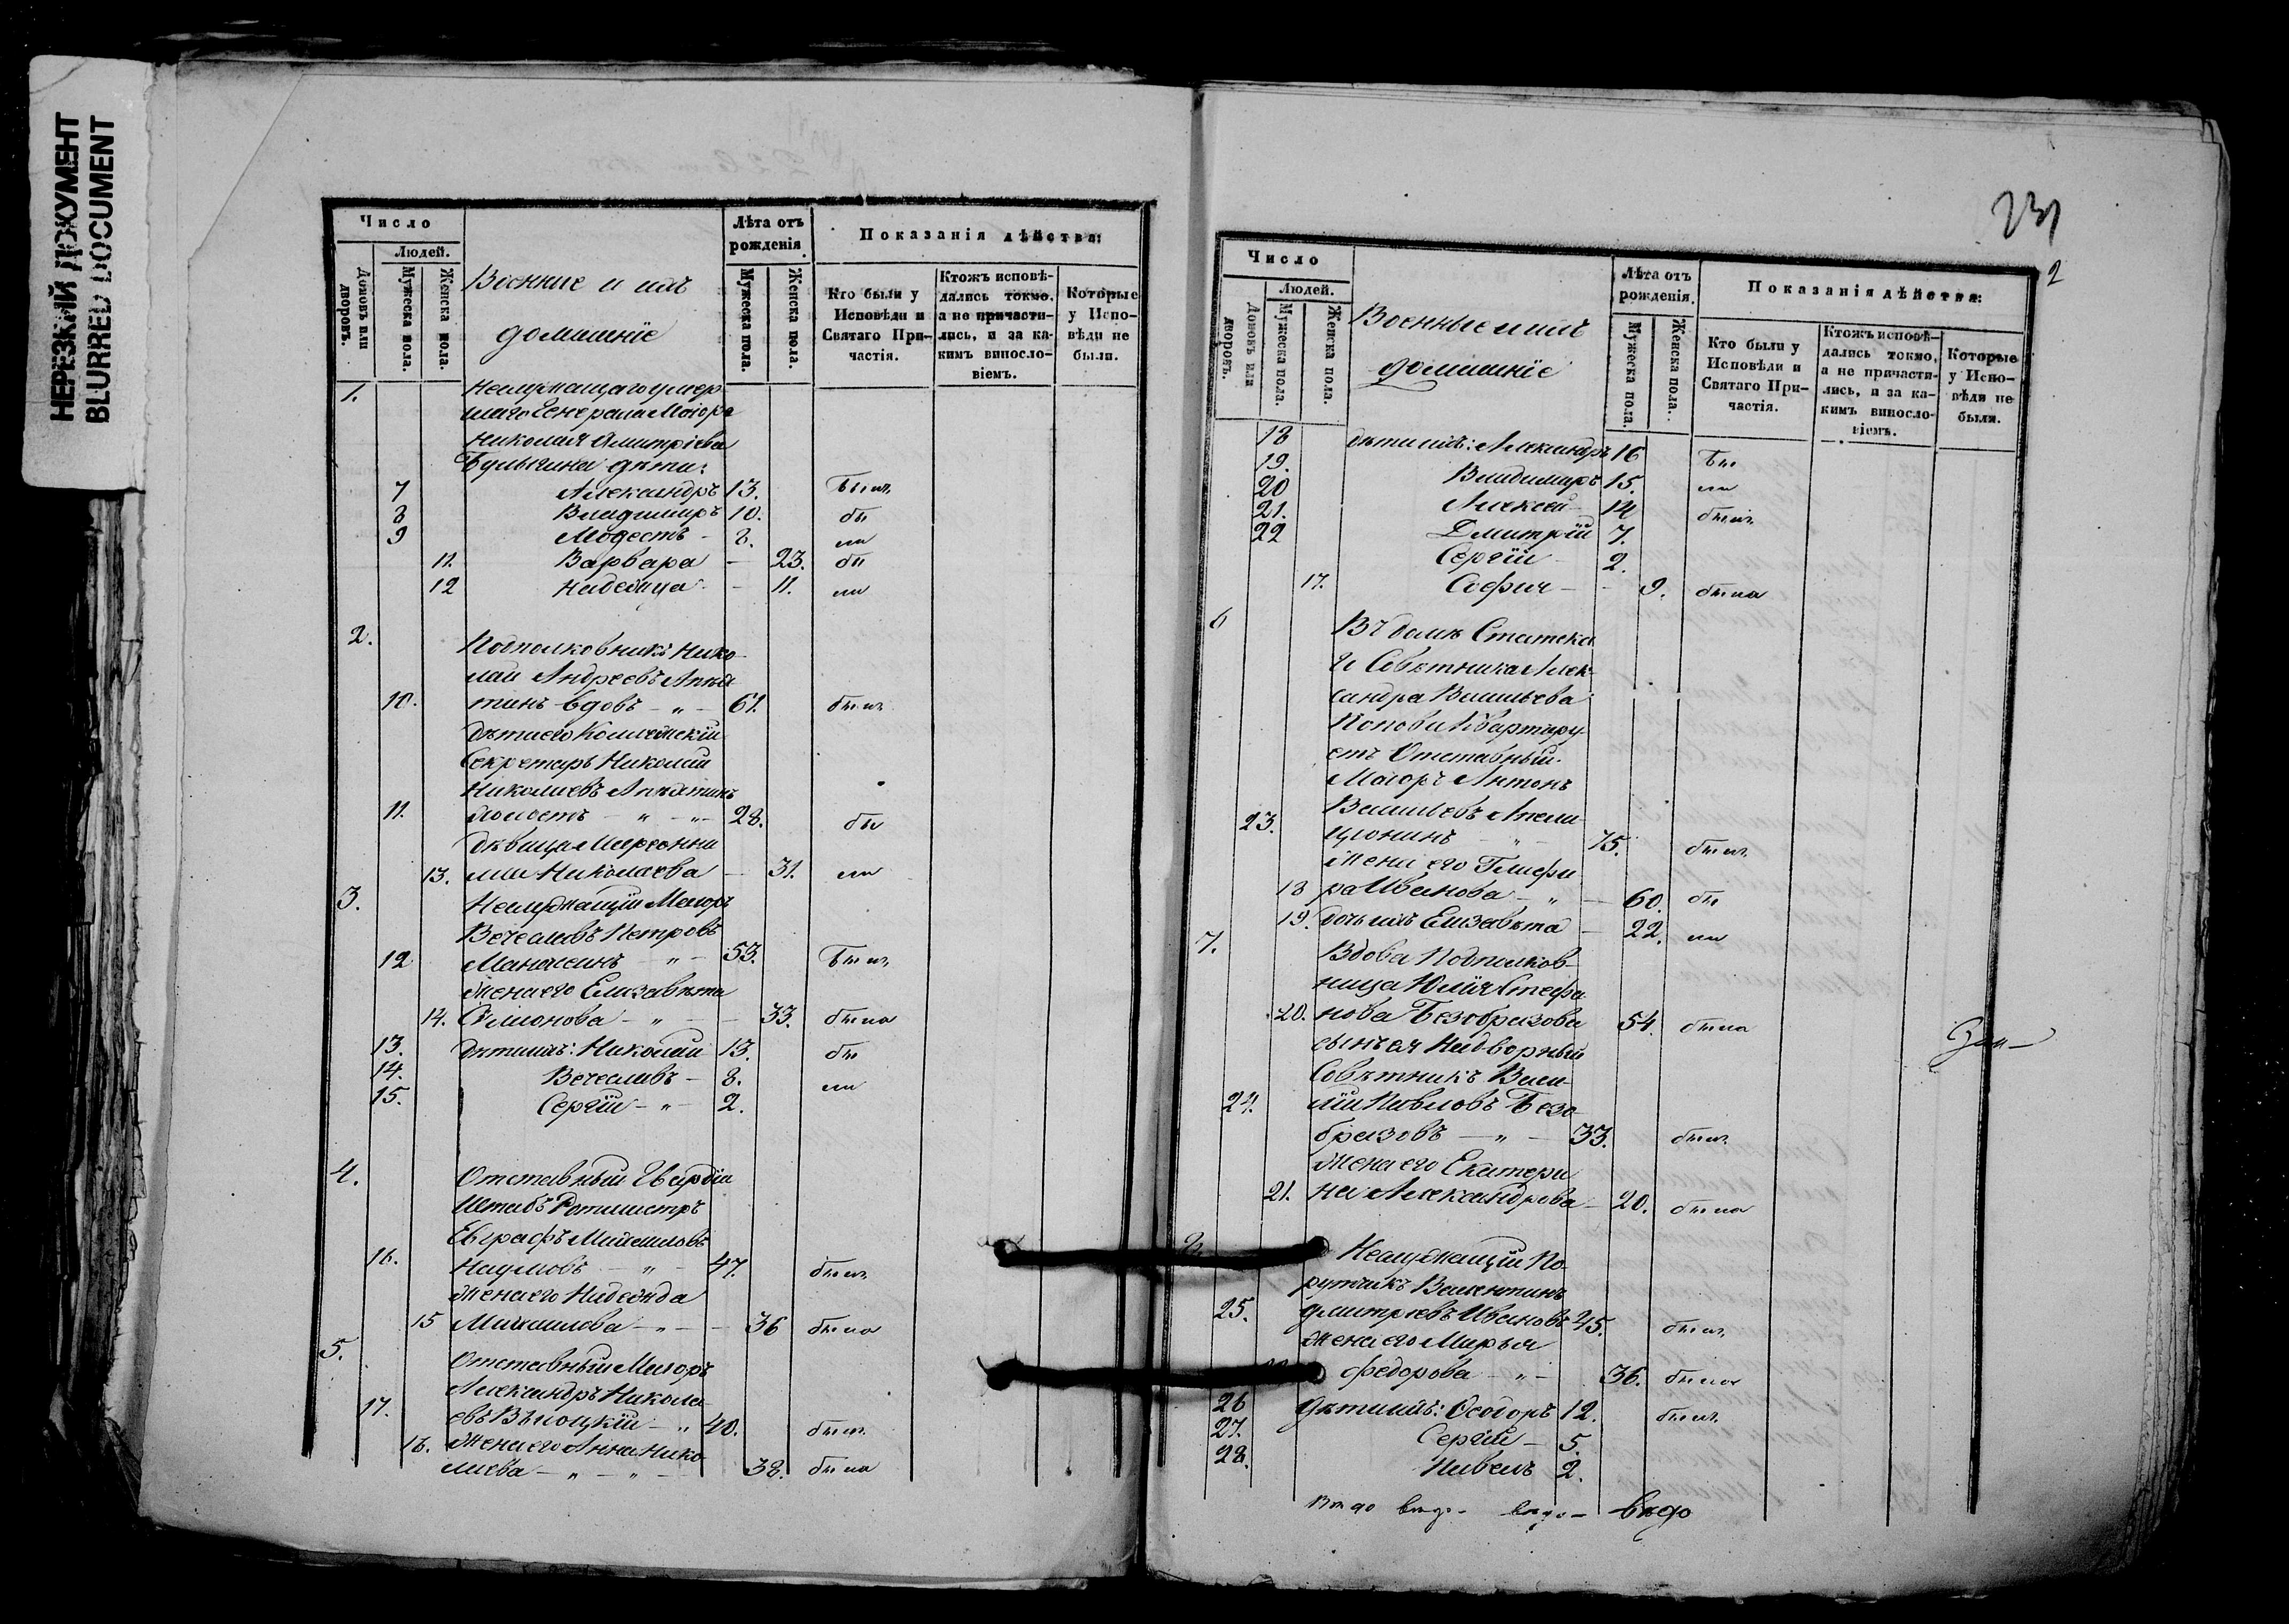 НЕРЕЗКИЙ ДОКУМЕНТ
BLURRED DOCUMENT
Число
Людей.
Домовъ или дворовъ.
Мужеска пола.
Женска пола.
Военные и ихъ
домашніе
Лѣта отъ рожденія.
Мужеска пола.
Женска пола.
Показанія дѣйства:
Кто были у Исповѣди и Святаго Причастія.
Ктожъ исповѣдались токмо, а не причастились, и за какимъ винословіемъ.
Которые у Исповѣди не были.
1. Неслужащаго умер
шаго Генерала Маіора
Николая Дмитріева
дѣти:
7 Александръ 13. былъ
8 Владимиръ 10. бы
9 Модестъ - 8. ли
11. Варвара - 23. бы
12 Надежда - 11. ли
2. Подполковникъ Нико
лай Андреевъ
10. вдовъ - „ - 61. былъ
дѣти его Коллежскій
Секретарь Николай
Николаевъ
11. холостъ - „ - „ - 28. бы
дѣвица
13. Николаева - 31. ли
3. Неслужащій Маіоръ
Вечеславъ Петровъ
12 - „ - 53. былъ
жена его Елизавѣта
14. Симонова - „ - - 33. была
13. дѣти ихъ: Николай 13. бы
14. Вечеславъ - 8. ли
15. Сергій - „ - 2.
4. Отставный Гвардіи
Штабъ Ротмистръ
Евграфъ Михаиловъ
16. Наумовъ - „ - 47. былъ
жена его Надежда
15 Михаилова - „ - - 36 была
5. Отставный Маіоръ
Александръ Никола
17. евъ - „ 40. былъ
16. жена его Анна Нико
лаева - „ - „ - 38. была
231
2
Число
Людей.
Домовъ или дворовъ.
Мужеска пола.
Женска пола.
Военные и ихъ
домашніе
Лѣта отъ рожденія.
Мужеска пола.
Женска пола.
Показанія дѣйства:
Кто были у Исповѣди и Святаго Причастія.
Ктожъ исповѣдались токмо, а не причастились, и за какимъ винословіемъ.
Которые у Исповѣди не были.
18 дѣти ихъ: Александръ 16 бы
19. Владимиръ 15. ли
20 Алексей - 14 былъ
21. Дмитрій 7.
22 Сергій - 2.
17. Софія - - 9. была
6 Въ домѣ Статска
го Совѣтника Алек
сандра Васильева
Попова Квартиру
етъ Отставный
Маіоръ Антонъ
23. Васильевъ
- „ - 75. былъ
жена его Глафи
18 ра Иванова - „ - 60. бы
19. дочь ихъ Елизавѣта - 22. ли
7. Вдова Подполков
ница Юлія Стефа
20. нова Безобразова 54. была
сынъ ея Надворный
Совѣтникъ Васи
24. лій Павловъ Безо
бразовъ - „ - 33. былъ
жена его Екатери
21. на Александрова - 20. была
Неслужащій По
ручикъ Валентинъ
25. Дмитріевъ Ивановъ 45. былъ
жена его Марья
Федорова - „ - 36. была
26 дѣти ихъ: Ѳеодоръ 12. былъ
27. Сергій - 5.
28. Павелъ 2.